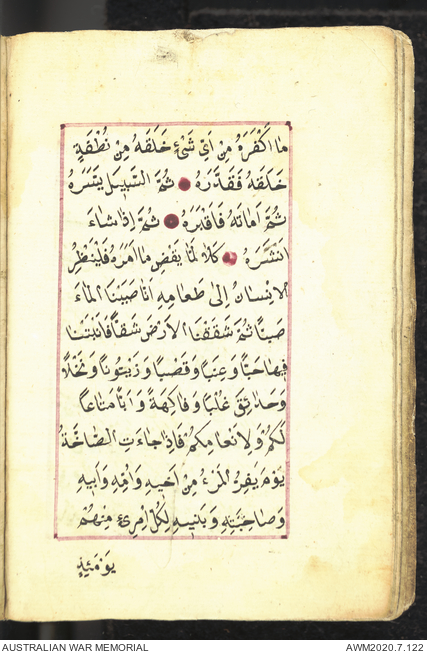 مَا اَكْفَرَهُ مِنْ اَىِّ شَىْءٍ خَلَقَهُ مِنْ نُطْفَةٍ
خَلَقَهُ فَقَدَّرَهُ ثُمَّ السَّبِيلَ يَسَّرَهُ
ثُمَّ اَمَاتَهُ فَاَقْبَرَهُ ثُمَّ اِذَا شَاءَ
اَنْشَرَهُ كَلَّا لَمَّا يَقْضِ مَا اَمَرَهُ فَلْيَنْظُرِ
الْاِنْسَانُ اِلٰى طَعَامِهِ اَنَّا صَبَبْنَا الْمَاءَ
صَبًّا ثُمَّ شَقَقْنَا الْاَرْضَ شَقًّا فَاَنْبَتْنَا
فِيهَا حَبًّا وَعِنَبًا وَقَضْبًا وَزَيْتُونًا وَنَخْلًا
وَحَدَائِقَ غُلْبًا وَفَاكِهَةً وَاَبًّا مَتَاعًا
لَكُمْ وَلِاَنْعَامِكُمْ فَاِذَا جَاءَتِ الصَّاخَّةُ
يَوْمَ يَفِرُّ الْمَرْءُ مِنْ اَخِيهِ وَاُمِّهِ وَاَبِيهِ
وَصَاحِبَتِهِ وَبَنِيهِ لِكُلِّ امْرِئٍ مِنْهُمْ
يَوْمَئِذٍ
AUSTRALIAN WAR MEMORIAL AWM2020.7.122